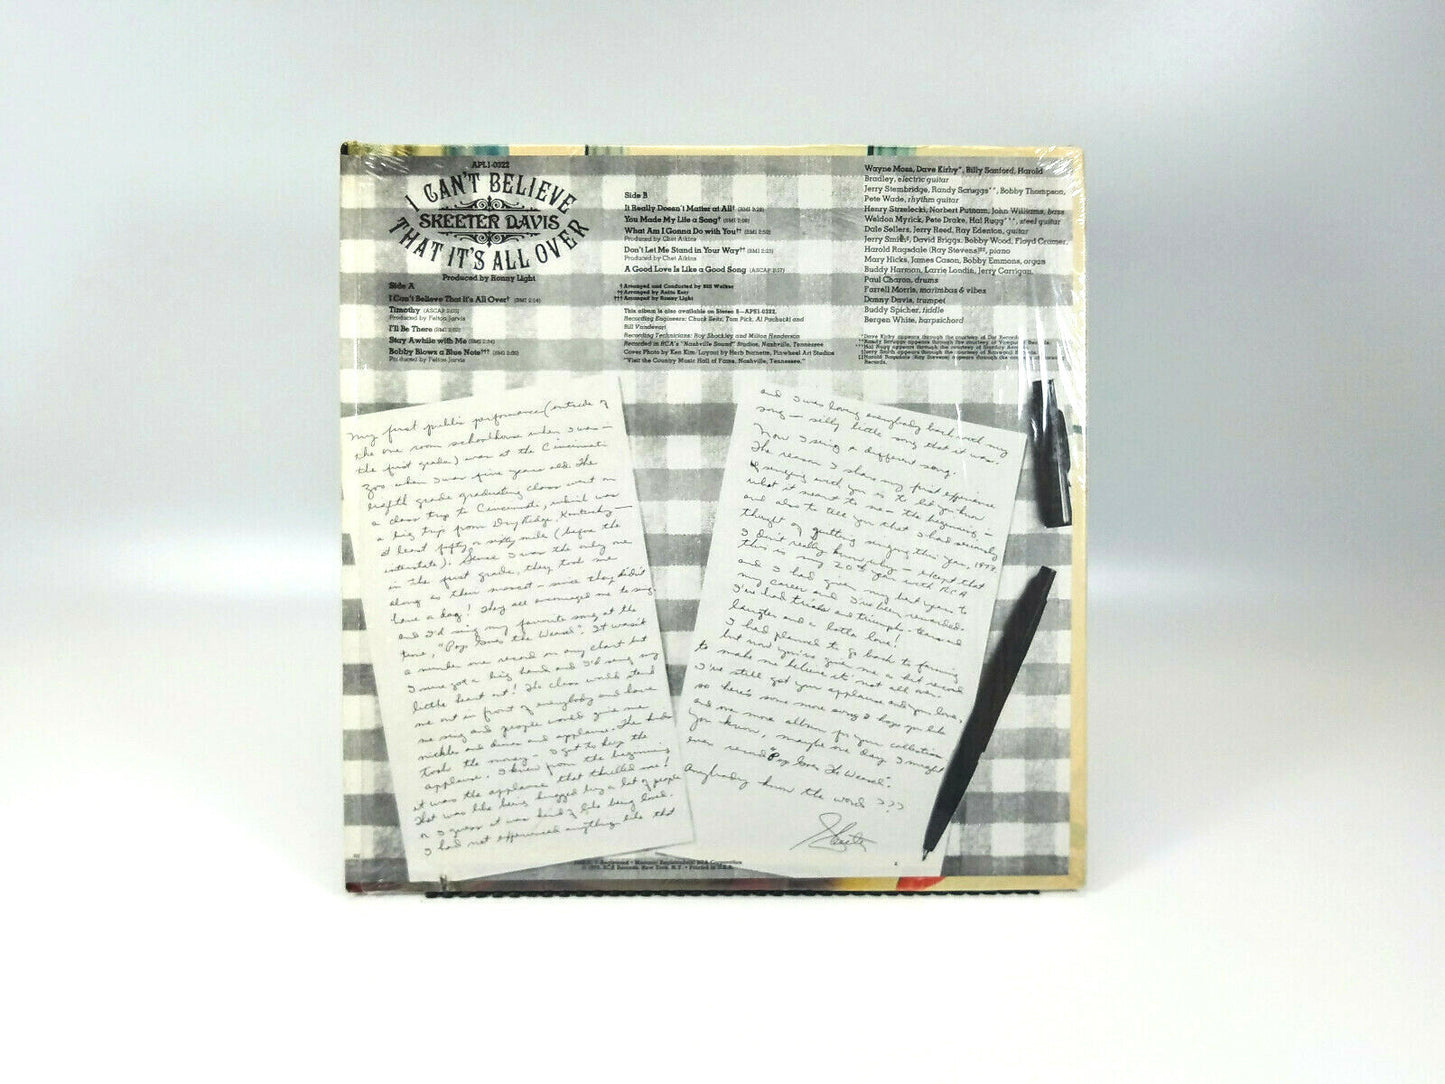 APL1-0322
I CAN'T BELIEVE
SKEETER DAVIS
THAT IT'S ALL OVER
Produced by Ronny Light
Side A
I Can't Believe That It's All Over† (BMI 2:54)
Timothy (ASCAP
Produced by Felton Jarvis
I'll Be There (BMI
Stay Awhile with Me (BMI
Bobby Blows a Blue Note††† (BMI
Produced by Felton Jarvis
Side B
It Really Doesn't Matter at All† (BMI
You Made My Life a Song† (BMI
What Am I Gonna Do with You†† (BMI
Produced by Chet Atkins
Don't Let Me Stand in Your Way†† (BMI
Produced by Chet Atkins
A Good Love Is Like a Good Song (ASCAP
† Arranged and Conducted by Bill Walker
†† Arranged by Anita Kerr
††† Arranged by Ronny Light
This album is also available on Stereo 8—APS1-0322.
Recording Engineers: Chuck Seitz, Tom Pick, Al Pachucki and
Bill Vandevort
Recording Technicians: Roy Shockley and Milton Henderson
Recorded in RCA's "Nashville Sound" Studios, Nashville, Tennessee
Cover Photo by Ken Kim/Layout by Herb Burnette, Pinwheel Art Studios
"Visit the Country Music Hall of Fame, Nashville, Tennessee."
Wayne Moss, Dave Kirby*, Billy Sanford, Harold
Bradley, electric guitar
Jerry Stembridge, Randy Scruggs**, Bobby Thompson,
Pete Wade, rhythm guitar
Henry Strzelecki, Norbert Putnam, John Williams, bass
Weldon Myrick, Pete Drake, Hal Rugg***, steel guitar
Dale Sellers, Jerry Reed, Ray Edenton, guitar
Jerry Smith, David Briggs, Bobby Wood, Floyd Cramer,
Harold Ragsdale (Ray Stevens), piano
Mary Hicks, James Cason, Bobby Emmons, organ
Buddy Harman, Larrie Londin, Jerry Carrigan,
Paul Charon, drums
Farrell Morris, marimbas & vibes
Danny Davis, trumpet
Buddy Spicher, fiddle
Bergen White, harpsichord
*Dave Kirby appears through the courtesy of Dot Records.
**Randy Scruggs appears through the courtesy of Vanguard Records.
***Hal Rugg appears through the courtesy of
Jerry Smith appears through the courtesy of Ranwood
Harold Ragsdale (Ray Stevens) appears through the courtesy of Barnaby
Records.
My first public performance (outside of
the one room schoolhouse when I was—
the first grade) was at the Cincinnati
Zoo when I was five years old. The
eighth grade graduating class went on
a class trip to Cincinnati, which was
a big trip from Dry Ridge, Kentucky—
at least fifty or sixty mile (before the
interstate). Since I was the only one
in the first grade, they took me
along as their mascot—since they didn't
have a dog! They all encouraged me to sing
and I'd sing my favorite song at the
time, "Pop Goes the Weasel". It wasn't
a number one record on any chart but
I sure got a big hand and I'd sing my
little heart out! The class would stand
me out in front of everybody and have
me sing and people would give me
nickles and dimes and applause. The kids
took the money—I got to keep the
applause. I knew from the beginning
it was the applause that thrilled me!
That was like being hugged by a lot of people
or I guess it was kind of like being loved.
I had not experienced anything like that
and I was loving everybody back with my
song—silly little song that it was.
Now I sing a different song.
The reason I share my first experience
of singing with you is to let you know
what it meant to me—the beginning—
and also to tell you that I had seriously
thought of quitting singing this year, 1973
I don't really know why—except that
this is my 20th year with RCA
and I had given my best years to
my career and I've been rewarded.
I've had trials and triumphs—tears and
laughter and a lotta love!
I had planned to go back to farming
but now you've given me a hit record
to make me believe it's not all over.
I've still got your applause and your love,
so here's some more songs I hope you like
and one more album for your collection
You know, maybe one day I might
even record "Pop Goes The Weasel".
Anybody know the words ???
Skeeter
© 1973, RCA Records, New York, N.Y. • Printed in U.S.A.